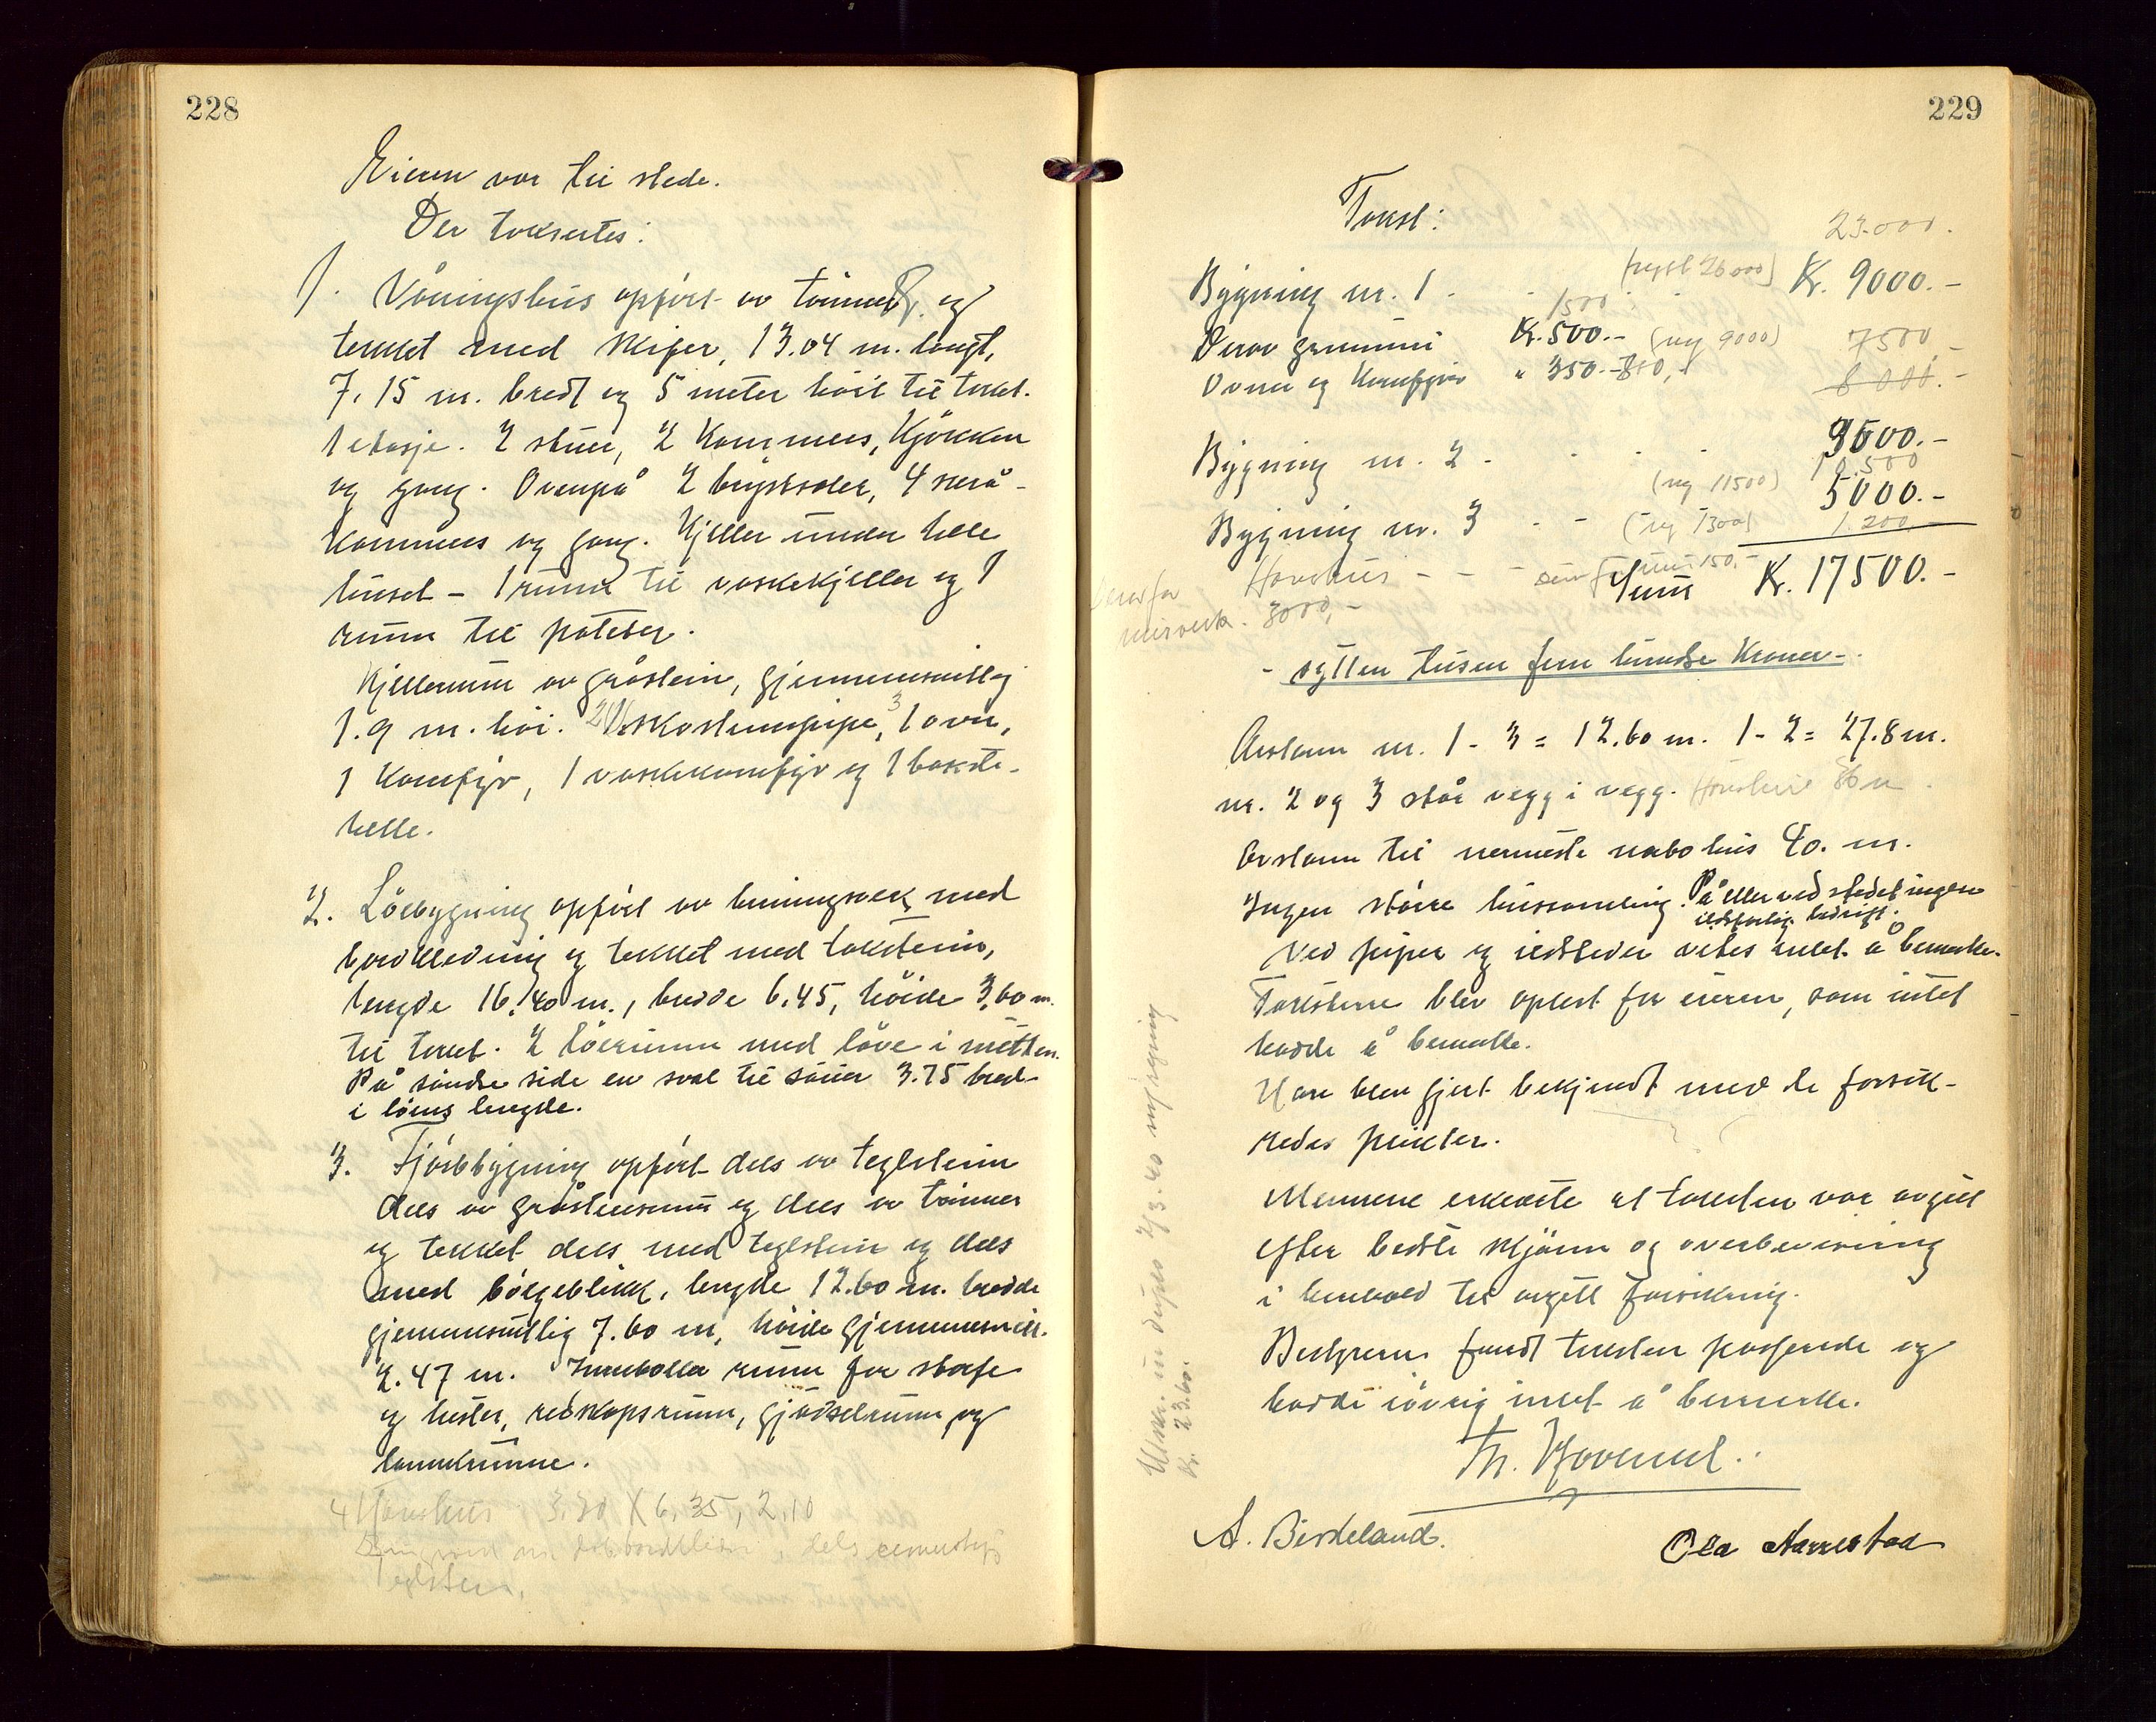 228
Eieren var til stede.
Der takseertes:
1. Våningshus opført av tømmer og
tekket med skifer, 13.04 m. langt,
7.15 m. bredt og 5 meter høit til taket.
1 etasje. 2 stuer, 2 kammers, kjøkken
og gang. Ovenpå 2 bryskvaler, 4 skrå-
kammers og gang. Kjeller under hele
huset - 1 rum til vaskekjeller og 1
rum til poteter.
Kjellermur av gråstein, gjennemsnittlig
1.9 m. høi. 2 Murstenspipe, 3 1 ovn,
1 komfyr, 1 vaskekomfyr og 1 bakste-
helle.
2. Løebygning opført av bindingsverk med
bordklædning og tekket med takstein,
lengde 16.40 m., bredde 6.45, høide 3.60 m.
til taket. 2 løerumm med låve i midten.
På søndre side en sval til sauer 3.75 bred
i løens lengde.
3. Fjøsbygning opført dels av teglstein
dels av gråstensmur og dels av tømmer
og tekket dels med teglstein og dels
med bølgeblikk, lengde 12.60 m. bredde
gjennemsnittlig 7.60 m, høide gjennemsnitt.
2.47 m. Inneholder rum for storfe
og hester, redskapsrum, gjødselrum og
lannkumme.
4 Hønshus 3.30 X 6.35, 2.10
dels
Teglstein.
229
Takst:
23.000.
Bygning nr. 1 - (nyst 26000) Kr. 9000.-
1500
Derav grunnmur Kr. 500.- (ny 9000) 7500
Ovner og komfyrer " 350.- 8000.-
Bygning nr. 2 - 3500.-
10.500
(ny 11500) 5000.-
Bygning nr. 3 - - (ny 1300) 1.200
Hønshus - - - mur 150.-
Sum Kr. 17500.-
Herav for
murverk. 3000,-
- sytten tusen fem hundre kroner -
Avstann nr. 1 - 3 = 12.60 m. 1 - 2 = 27.8 m.
nr. 2 og 3 står vegg i vegg. Hønshus 86 m.
Avstann til nermeste nabohus 40. m.
Ingen større hussamling. På eller ved stedet ingen
ildsfarlig bedrift.
Ved piper og ildsteder vites intet å bemerke.
Taksterne blev oplest for eieren, som intet
hadde å bemerke.
Han blev gjort bekjendt med de forsik-
redes plikter.
Mennene erklærte at taksten var avgitt
efter bedste skjønn og overbevisning
i henhold til avgitt forsikring.
Bestyreren fandt taksten passende og
hadde iøvrig intet å bemerke.
A. Birkeland.
Utskr.
Kr. 23.60.